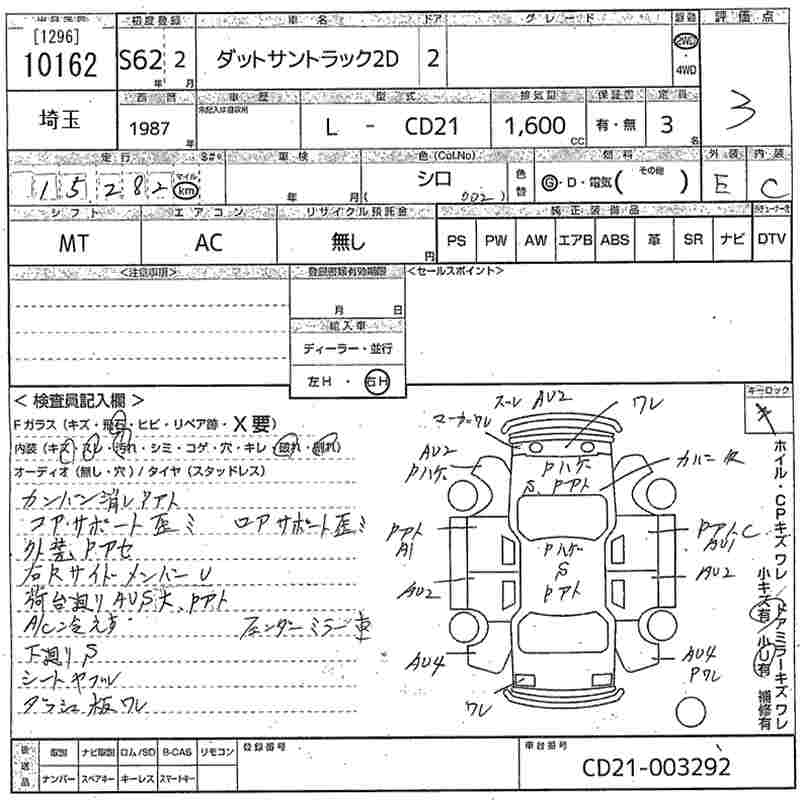 [1296]
10162
初度登録
車名
ドア
グレード
評価点
S62 2
年 月
ダットサントラック2D
2
2WD
4WD
3
埼玉
西暦
車歴
型式
排気量
保証書
定員
1987
年
L - CD21
1,600
CC
有・無
3
名
走行
車検
色(Col.No)
燃料
その他
外装
内装
15,282
マイル
km
年 月
シロ
(002)
色替
G・D・電気( )
E
C
シフト
エアコン
リサイクル預託金
純正装備品
MT
AC
無し
円
PS PW AW エアB ABS 革 SR ナビ DTV
<注意事項>
<セールスポイント>
月 日
輸入車
ディーラー・並行
左H・右H
<検査員記入欄>
Fガラス(キズ・飛石・ヒビ・リペア跡・X要)
内装(キズ・スレ・汚れ・シミ・コゲ・穴・キレ・破れ・割れ)
オーディオ(無し・穴)/タイヤ(スタッドレス)
カンバン消しアト
コアサポート歪ミ ロアサポート歪ミ
外装Pアセ
右Rサイドメンバー U
荷台廻りAUS大、Pアト
A/C冷えず フェンダーミラー車
下廻りS
シートヤブレ
ダッシュ板ワレ
スーレ AU2
ワレ
マーカーワレ
AU2
Pハゲ
Pハゲ
S、Pアト
Pアト
A1
Pハゲ
S
Pアト
PアトC
AU1
AU2
AU2
AU4
AU4
Pワレ
ワレ
キーロック
キ
ホイル・CPキズ ワレ/ドアミラーキズ ワレ
小キズ有/小U有 補修有
後送品
取説 ナビ取説 ロム/SD B-CAS リモコン
ナンバー スペアキー キーレス スマートキー
登録番号
車台番号
CD21-003292